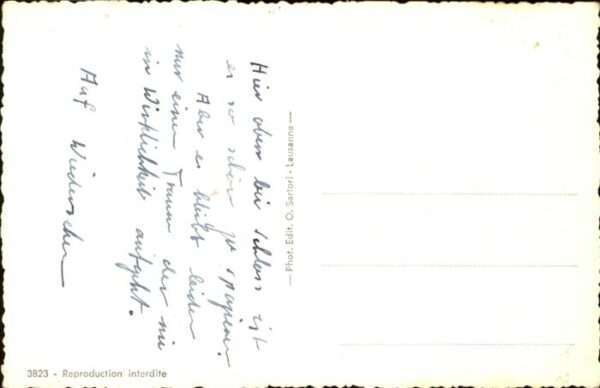 Hier oben bei Schloss ist
es so schön zu spazieren.
Aber es bleibt leider
nur einen Traum der nie
in Wirklichkeit aufgeht.
Auf Wiedersehen
— Phot. Edit. O. Sartori - Lausanne —
3823 - Reproduction interdite